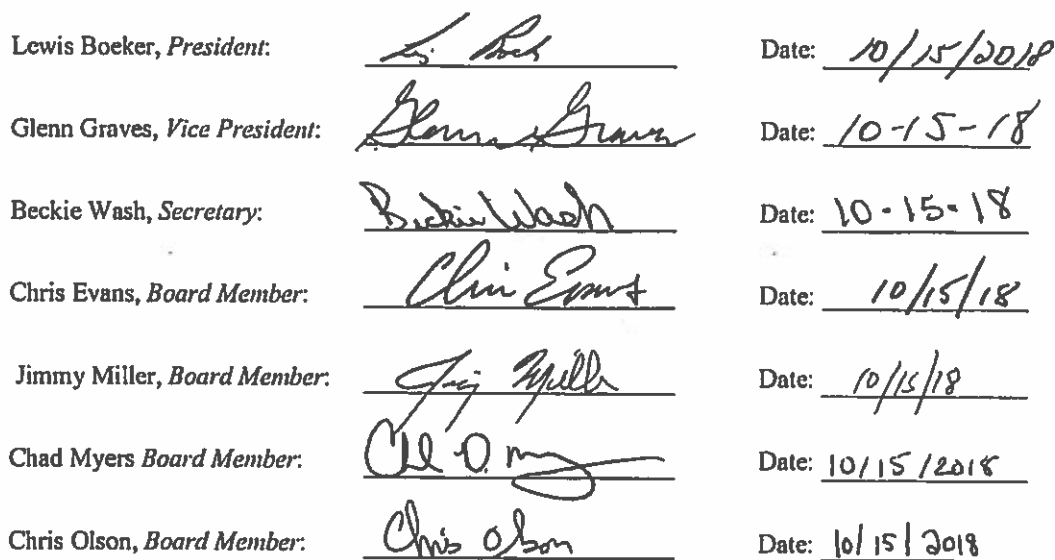 Lewis Boeker, President: Date: 10/15/2018
Glenn Graves, Vice President: Glenn Graves Date: 10-15-18
Beckie Wash, Secretary: Beckie Wash Date: 10-15-18
Chris Evans, Board Member: Chris Evans Date: 10/15/18
Jimmy Miller, Board Member: Miller Date: 10/15/18
Chad Myers Board Member: Date: 10/15/2018
Chris Olson, Board Member: Chris Olson Date: 10/15/2018